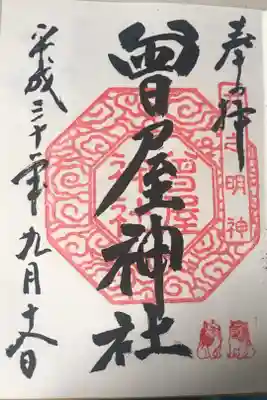 奉拝
井之明神
曾屋神社
曾屋
神社
平成三十年九月十六日